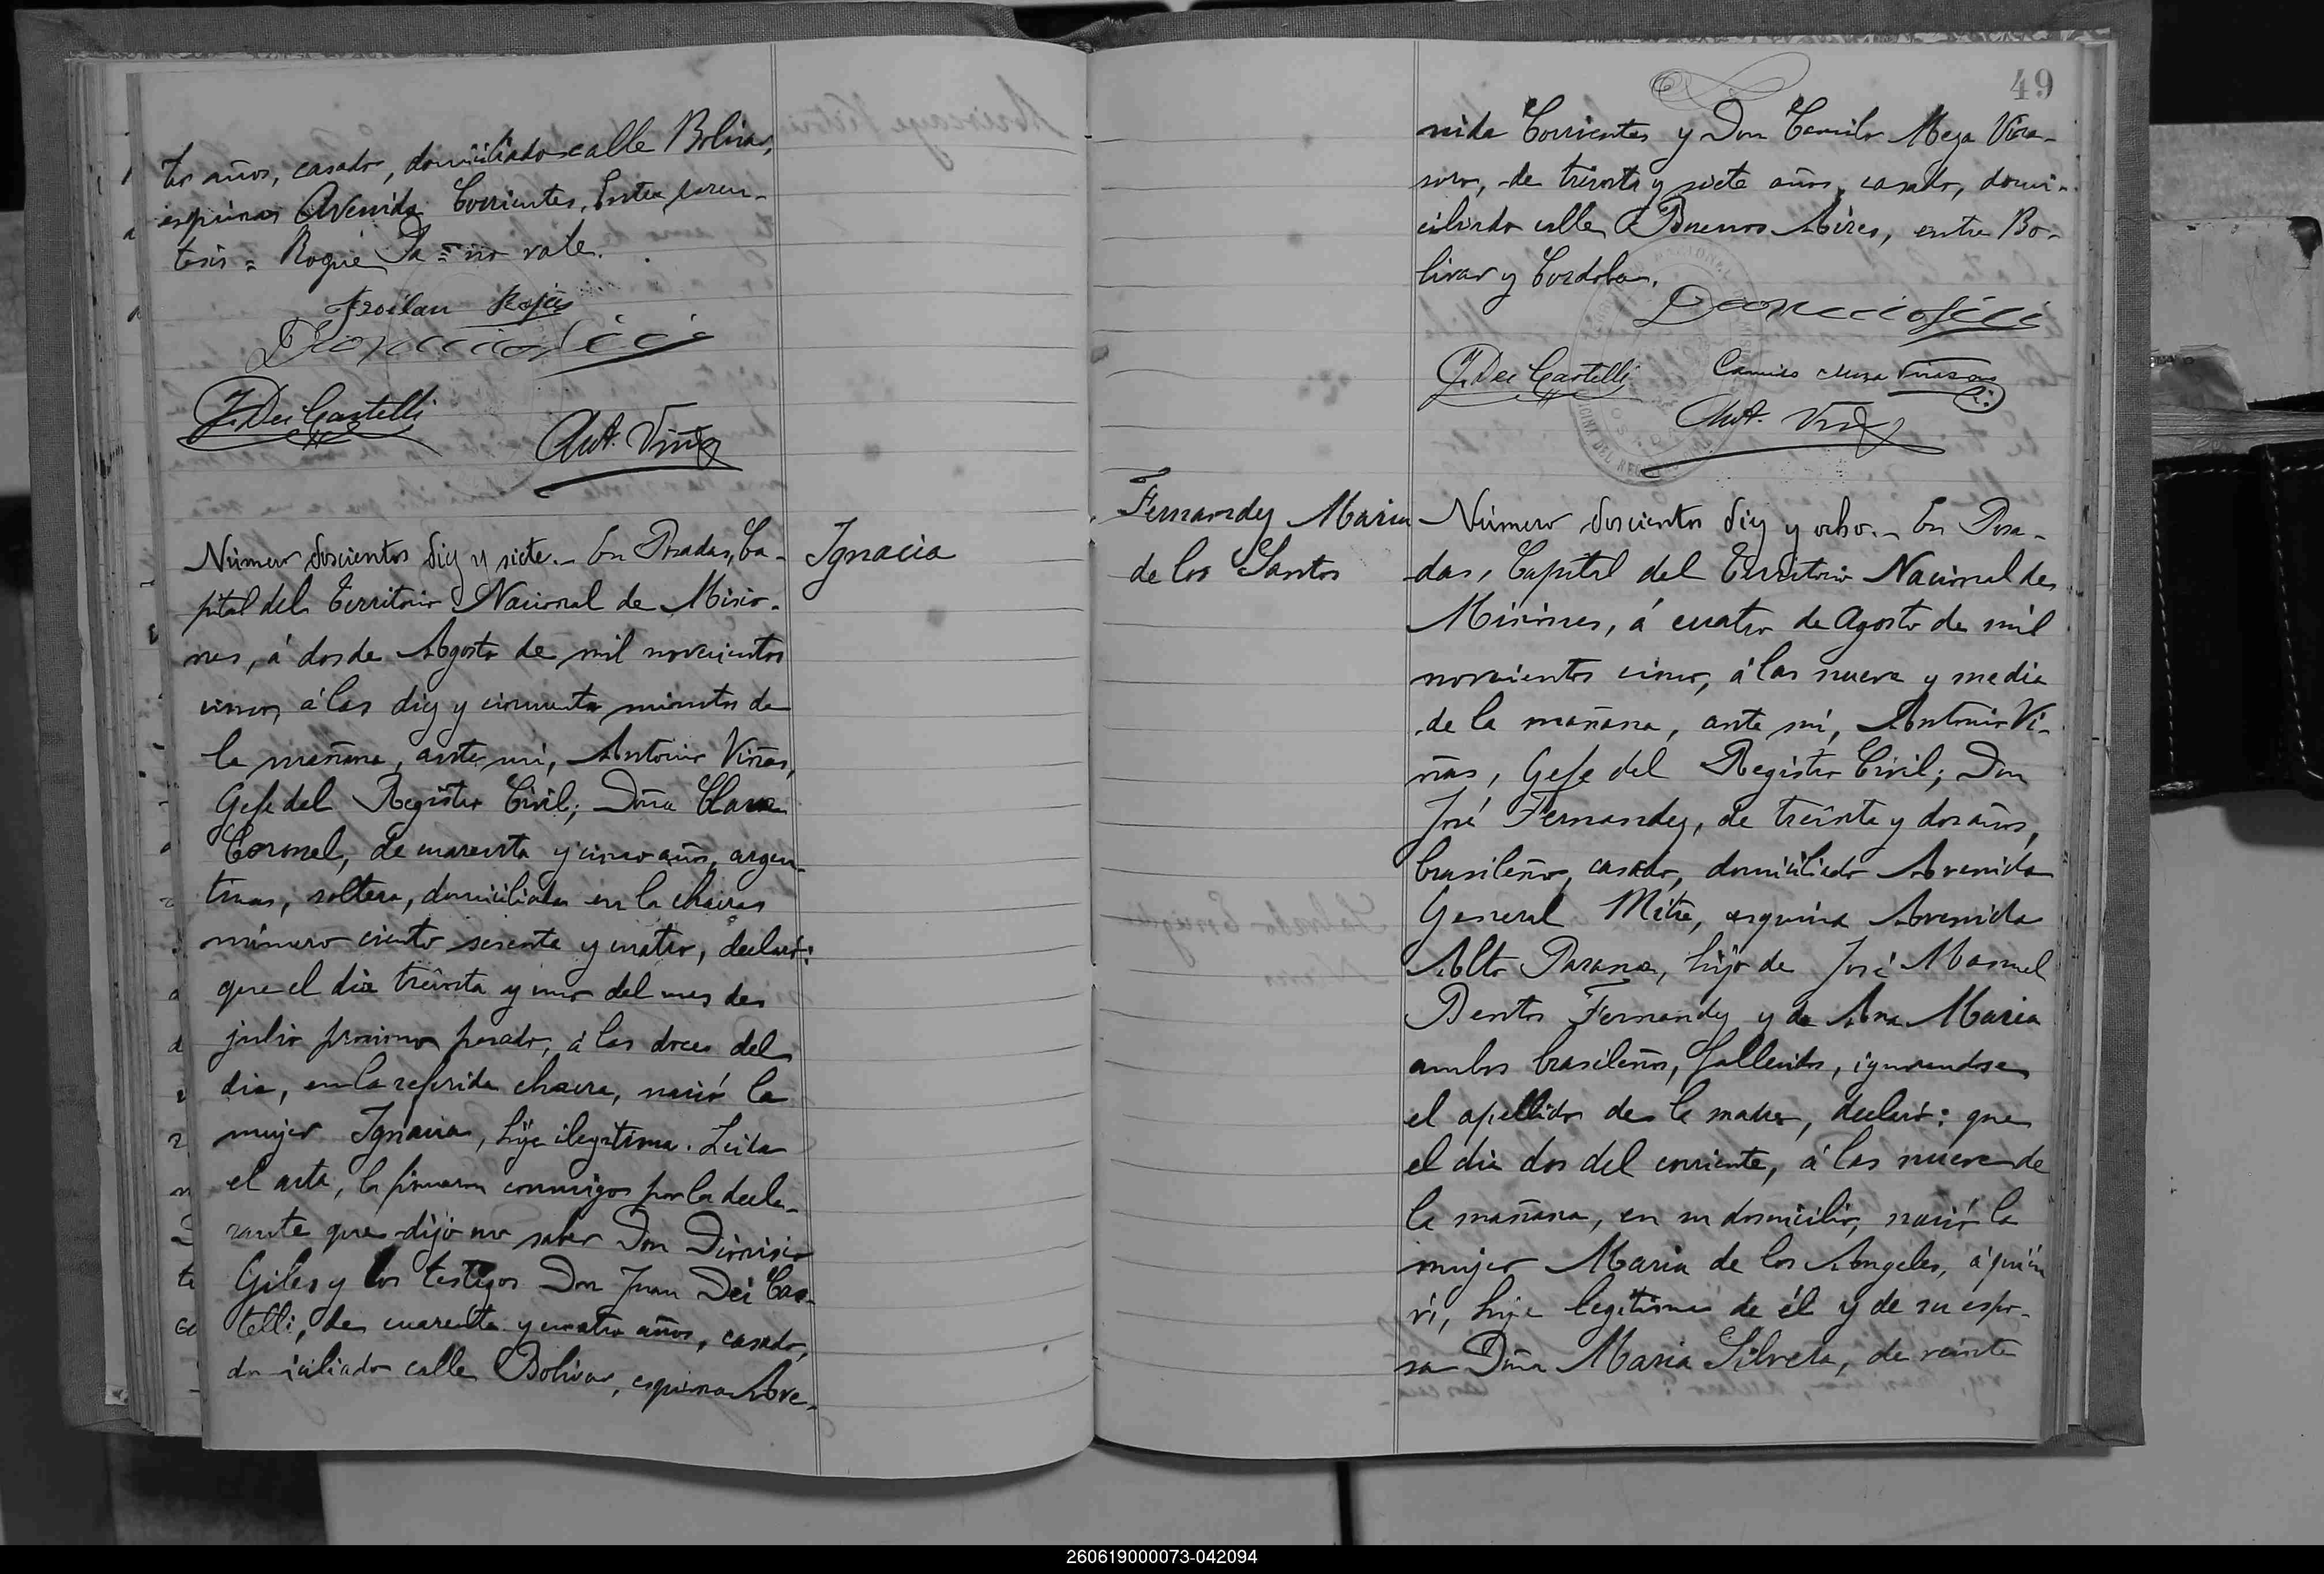 tro años, casado, domiciliado calle Bolivar,
esquina Avenida Corrientes. Entre paren-
tesis = Roque Pa = no vale.
Froilan Rojas
J. Dei Castelli
Ant. Viñas
Número doscientos diez y siete.- En Posadas, Ca-
pital del Territorio Nacional de Misio-
nes, á dos de Agosto de mil novecientos
cinco, á las diez y cincuenta minutos de
la mañana, ante mi, Antonio Viñas,
Gefe del Registro Civil; Doña Clara
Coronel, de cuarenta y cinco años, argen-
tina, soltera, domiciliada en la chacra
número ciento sesenta y cuatro, declaró:
que el dia treinta y uno del mes de
julio proximo pasado, á las doce del
dia, en la referida chacra, nació la
mujer Ignacia, hija ilegitima. Leida
el acta, la firmaron conmigo por la decla-
rante que dijo no saber Don Dionisio
Giles y los testigos Don Juan Dei Cas-
telli, de cuarenta y cuatro años, casado,
domiciliado calle Bolivar, esquina Ave-
Ignacia
49
nida Corrientes y Don Camilo Meza Vira-
soro, de treinta y siete años, casado, domi-
ciliado calle Buenos Aires, entre Bo-
livar y Cordoba.
J. Dei Castelli
Camilo Meza Virasoro
Ant. Viñas
Fernandez Maria
de los Santos
Número doscientos diez y ocho.- En Posa-
das, Capital del Territorio Nacional de
Misiones, á cuatro de Agosto de mil
novecientos cinco, á las nueve y media
de la mañana, ante mi, Antonio Vi-
ñas, Gefe del Registro Civil; Don
José Fernandez, de treinta y dos años,
brasileño, casado, domiciliado Avenida
General Mitre, esquina Avenida
Alto Parana, hijo de José Manuel
Bentos Fernandez y de Ana Maria
ambos brasileños, fallecidos, ignorandose
el apellido de la madre, declaró: que
el dia dos del corriente, á las nueve de
la mañana, en su domicilio, nació la
mujer Maria de los Angeles, á quién
vi, hija legitima de él y de su espo-
sa Doña Maria Silveta, de veinte
260619000073-042094